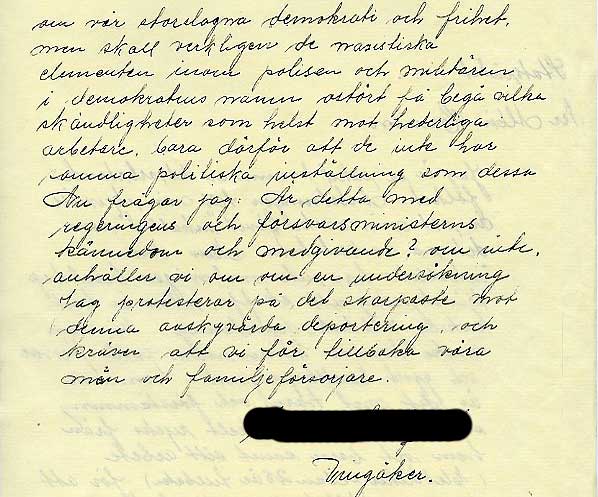 om vår storslagna demokrati och frihet,
men skall verkligen de nasistiska
elementen inom polisen och militären
i demokratins namn ostört få begå vilka
skändligheter som helst mot hederliga
arbetare, bara därför att de inte har
samma politiska inställning som dessa
Nu frågar jag: Är detta med
regeringens och försvarsministerns
kännedom och medgivande? om inte,
anhåller vi om om en undersökning
Jag protesterar på det skarpaste mot
denna avskyvärda deportering, och
kräver att vi får tillbaka våra
män och familjeförsörjare.
Vingåker.